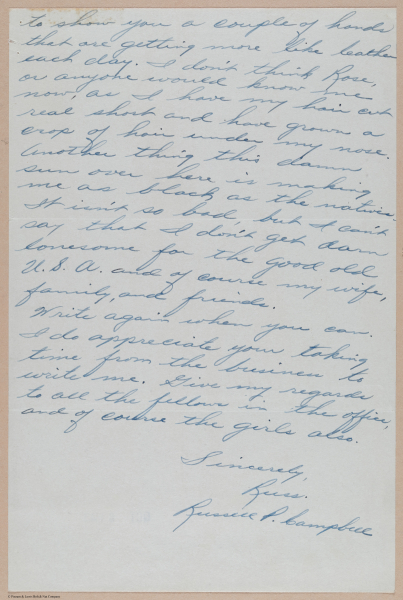 to show you a couple of hands
that are getting more like leather
each day. I don't think Rose,
or anyone would know me
now, as I have my hair cut
real short and have grown a
crop of hair under my nose.
Another thing this damn
sun over here is making
me as black as the natives.
It isn't so bad, but I can't
say that I don't get darn
lonesome for the good old
U.S.A. and of course my wife,
family, and friends.
Write again when you can.
I do appreciate your taking
time from the business to
write me. Give my regards
to all the fellows in the office,
and of course the girls also.
Sincerely,
Russ.
Russell P. Campbell